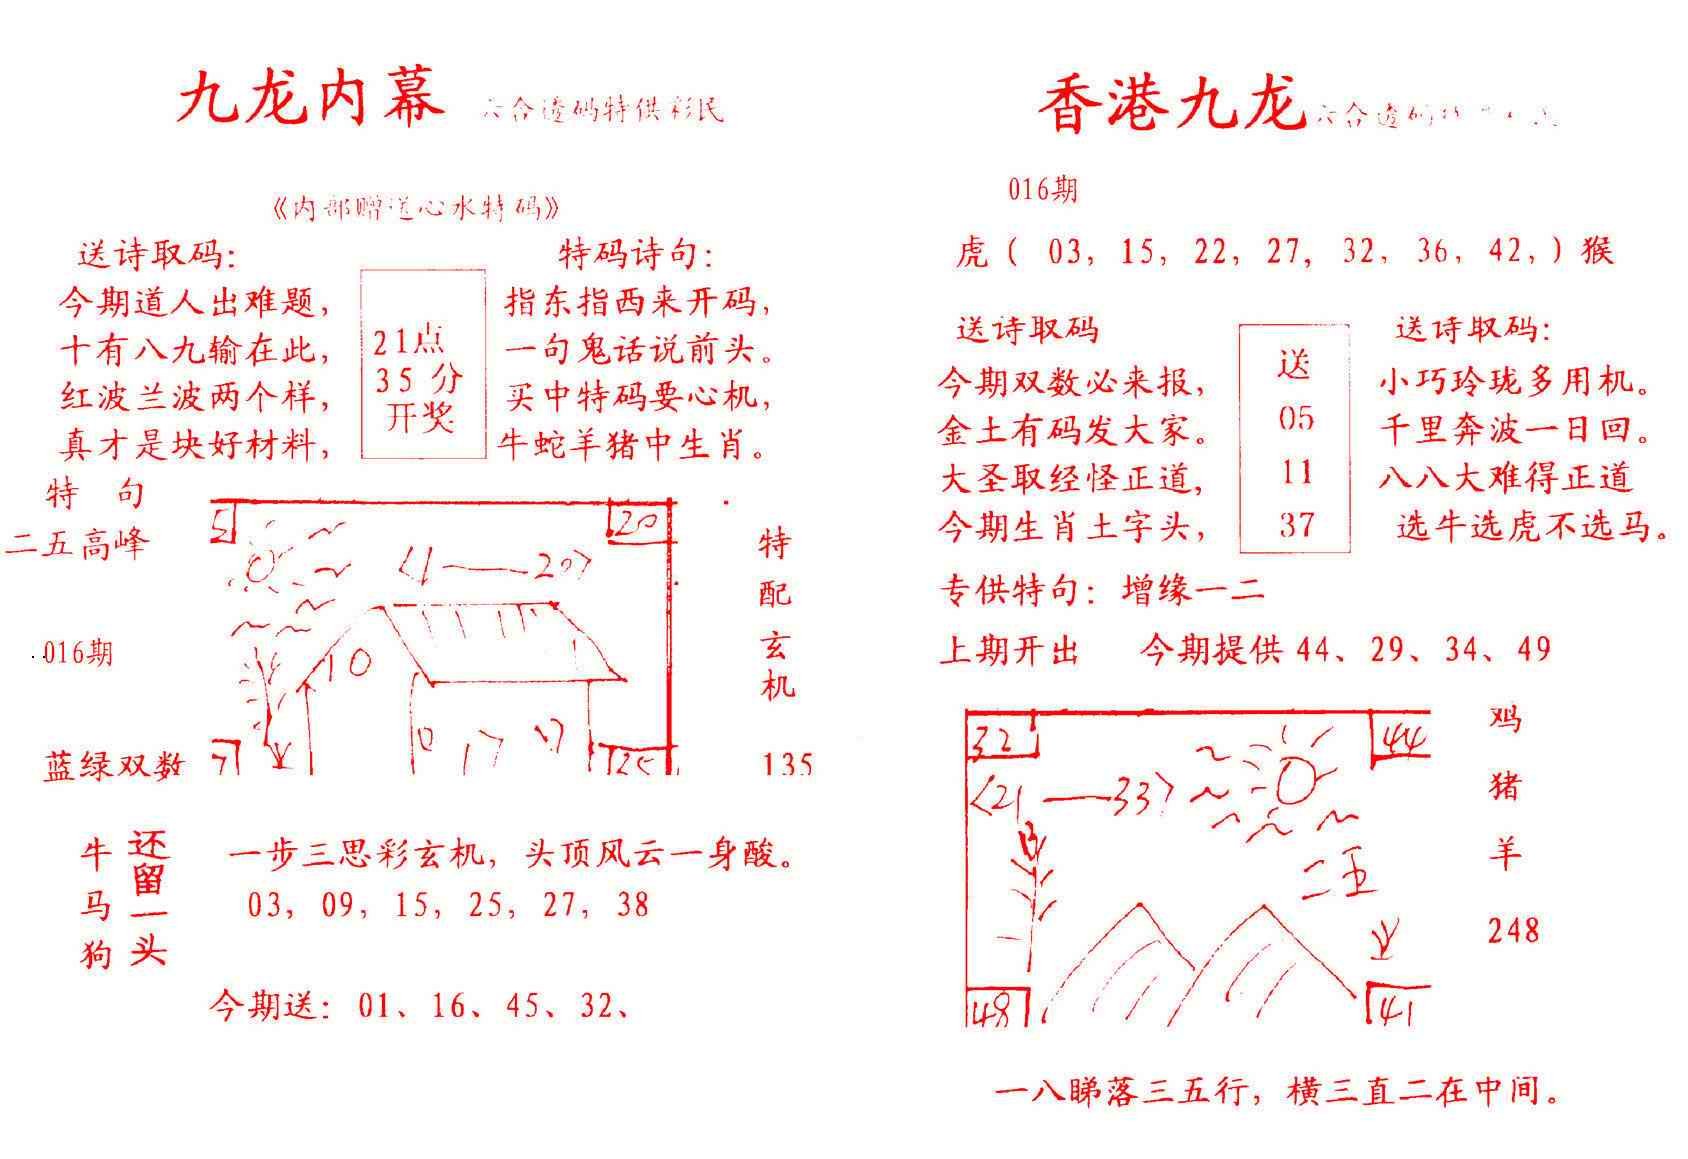 九龙内幕 六合透码特供彩民
《内部赠送心水特码》
送诗取码：
今期道人出难题，
十有八九输在此，
红波兰波两个样，
真才是块好材料，
21点
35 分
开奖
特码诗句：
指东指西来开码，
一句鬼话说前头。
买中特码要心机，
牛蛇羊猪中生肖。
特 句
二五高峰
016期
蓝绿双数
5
20
〈1——20〉
10
0 17
7
25
特
配
玄
机
135
牛
马
狗
还
留
一
头
一步三思彩玄机，头顶风云一身酸。
03，09，15，25，27，38
今期送：01、16、45、32、
香港九龙 六合透码
016期
虎（ 03，15，22，27，32，36，42，）猴
送诗取码
今期双数必来报，
金土有码发大家。
大圣取经怪正道，
今期生肖土字头，
送
05
11
37
送诗取码：
小巧玲珑多用机。
千里奔波一日回。
八八大难得正道
选牛选虎不选马。
专供特句：增缘一二
上期开出 今期提供 44、29、34、49
32
44
〈21——33〉
二五
48
41
鸡
猪
羊
248
一八睇落三五行，横三直二在中间。